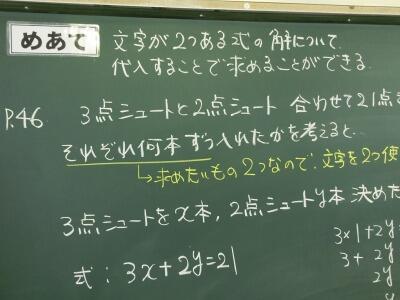 めあて
文字が2つある式の解について
代入することで求めることができる。
P.46
3点シュートと2点シュート 合わせて21点
それぞれ何本ずつ入れたかを考えると…
↳求めたいもの2つなので、文字を2つ使
3点シュートをx本, 2点シュートy本 決めた
式: 3x+2y=21
3×1+2y
3+2y
2y